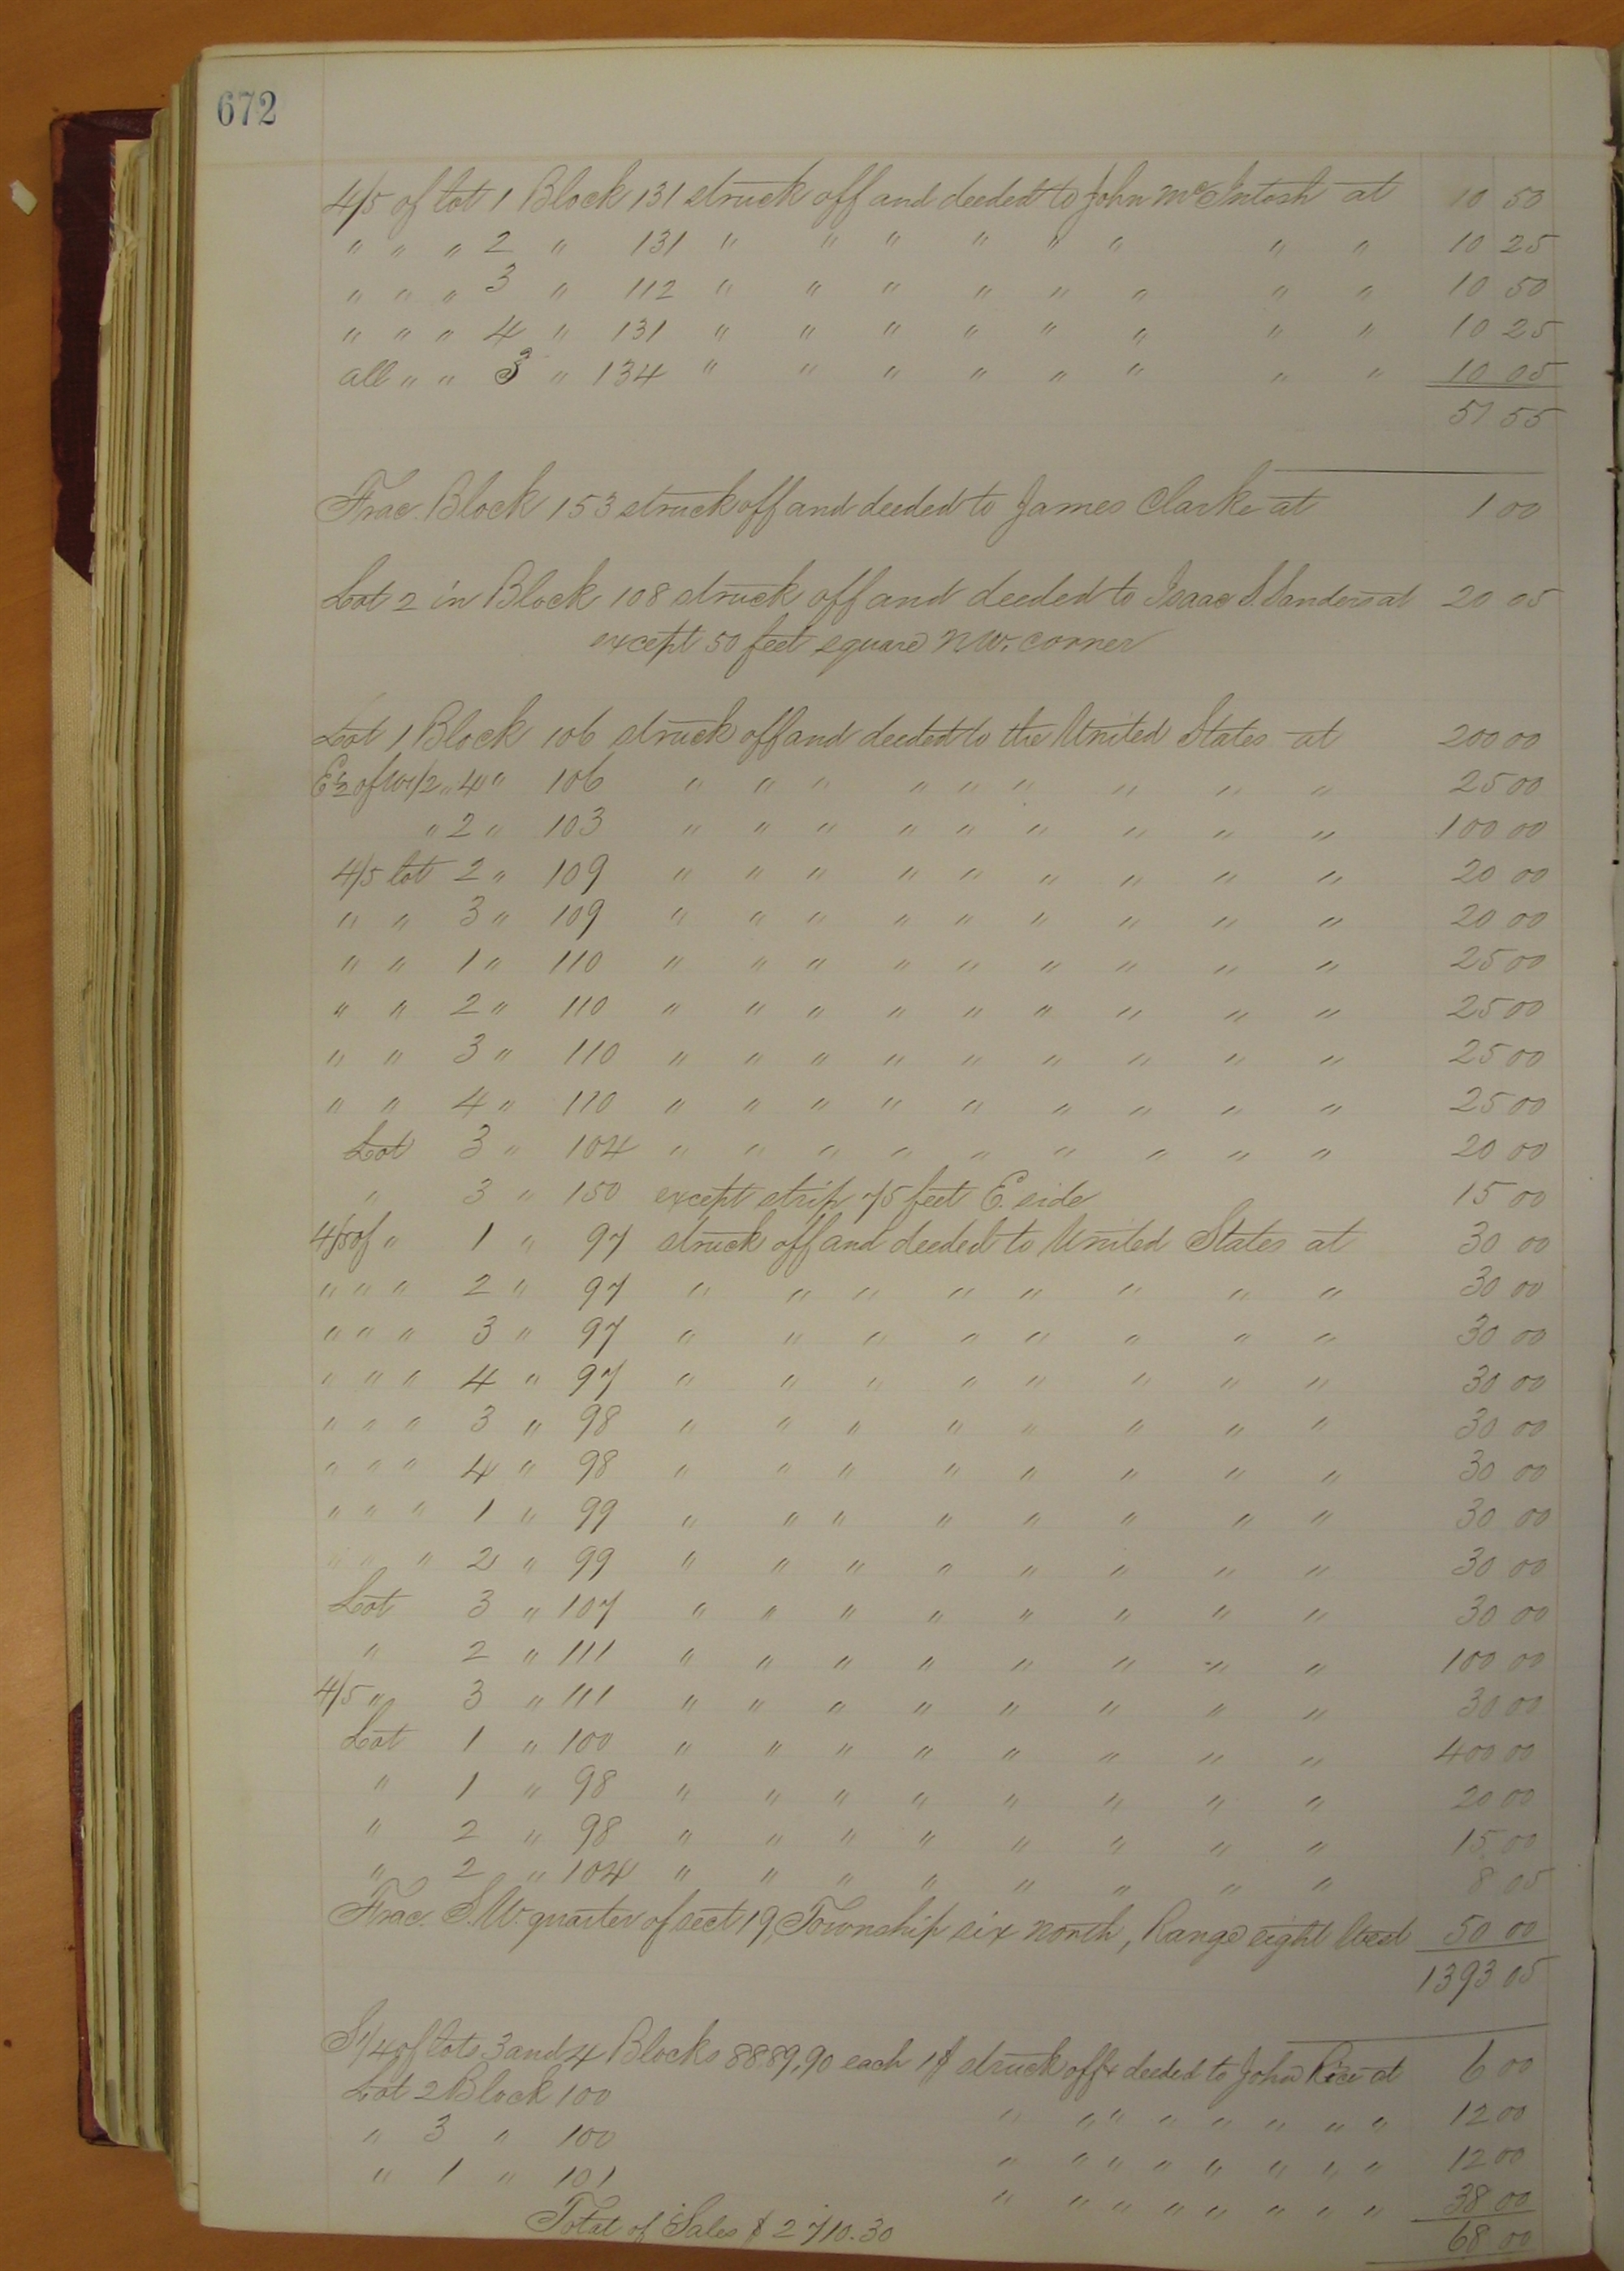 672
4/5 of lot 1 Block 131 struck off and deeded to John McIntosh at 10 50
" " " 2 " 131 " " " " " " " " 10 25
" " " 3 " 112 " " " " " " " " 10 50
" " " 4 " 131 " " " " " " " " 10 25
all " " 3 " 134 " " " " " " " " 10 05
51 55
Frac. Block 153 struck off and deeded to James Clarke at 1 00
Lot 2 in Block 108 struck off and deeded to Isaac S. Sanders at 20 05
except 50 feet square N W. corner
Lot 1 Block 106 struck off and deeded to the United States at 200 00
E ½ of W 1/2 " 4 " 106 " " " " " " " " " 25 00
" 2 " 103 " " " " " " " " " 100 00
4/5 lot 2 " 109 " " " " " " " " " 20 00
" " 3 " 109 " " " " " " " " " 20 00
" " 1 " 110 " " " " " " " " " 25 00
" " 2 " 110 " " " " " " " " " 25 00
" " 3 " 110 " " " " " " " " " 25 00
" " 4 " 110 " " " " " " " " " 25 00
Lot 3 " 104 " " " " " " " " " 20 00
" 3 " 150 except strip 75 feet E. side 15 00
4/5 of " 1 " 97 struck off and deeded to United States at 30 00
" " " 2 " 97 " " " " " " " " 30 00
" " " 3 " 97 " " " " " " " " 30 00
" " " 4 " 97 " " " " " " " " 30 00
" " " 3 " 98 " " " " " " " " 30 00
" " " 4 " 98 " " " " " " " " 30 00
" " " 1 " 99 " " " " " " " " 30 00
" " " 2 " 99 " " " " " " " " 30 00
Lot 3 " 107 " " " " " " " " 30 00
" 2 " 111 " " " " " " " " 100 00
4/5 " 3 " 111 " " " " " " " " 30 00
Lot 1 " 100 " " " " " " " " 400 00
" 1 " 98 " " " " " " " " 20 00
" 2 " 98 " " " " " " " " 15 00
" 2 " 104 " " " " " " " " 8 05
Frac. S.W. quarter of sect 19, Township six north, Range eight West 50 00
1393 05
S 1/4 of lots 3 and 4 Blocks 88 89, 90 each 1$ struck off & deeded to John Rice at 6 00
Lot 2 Block 100 " " " " " " " " 12 00
" 3 " 100 " " " " " " " " 12 00
" 1 " 101 " " " " " " " " 38 00
Total of Sales $ 2710.30 68 00